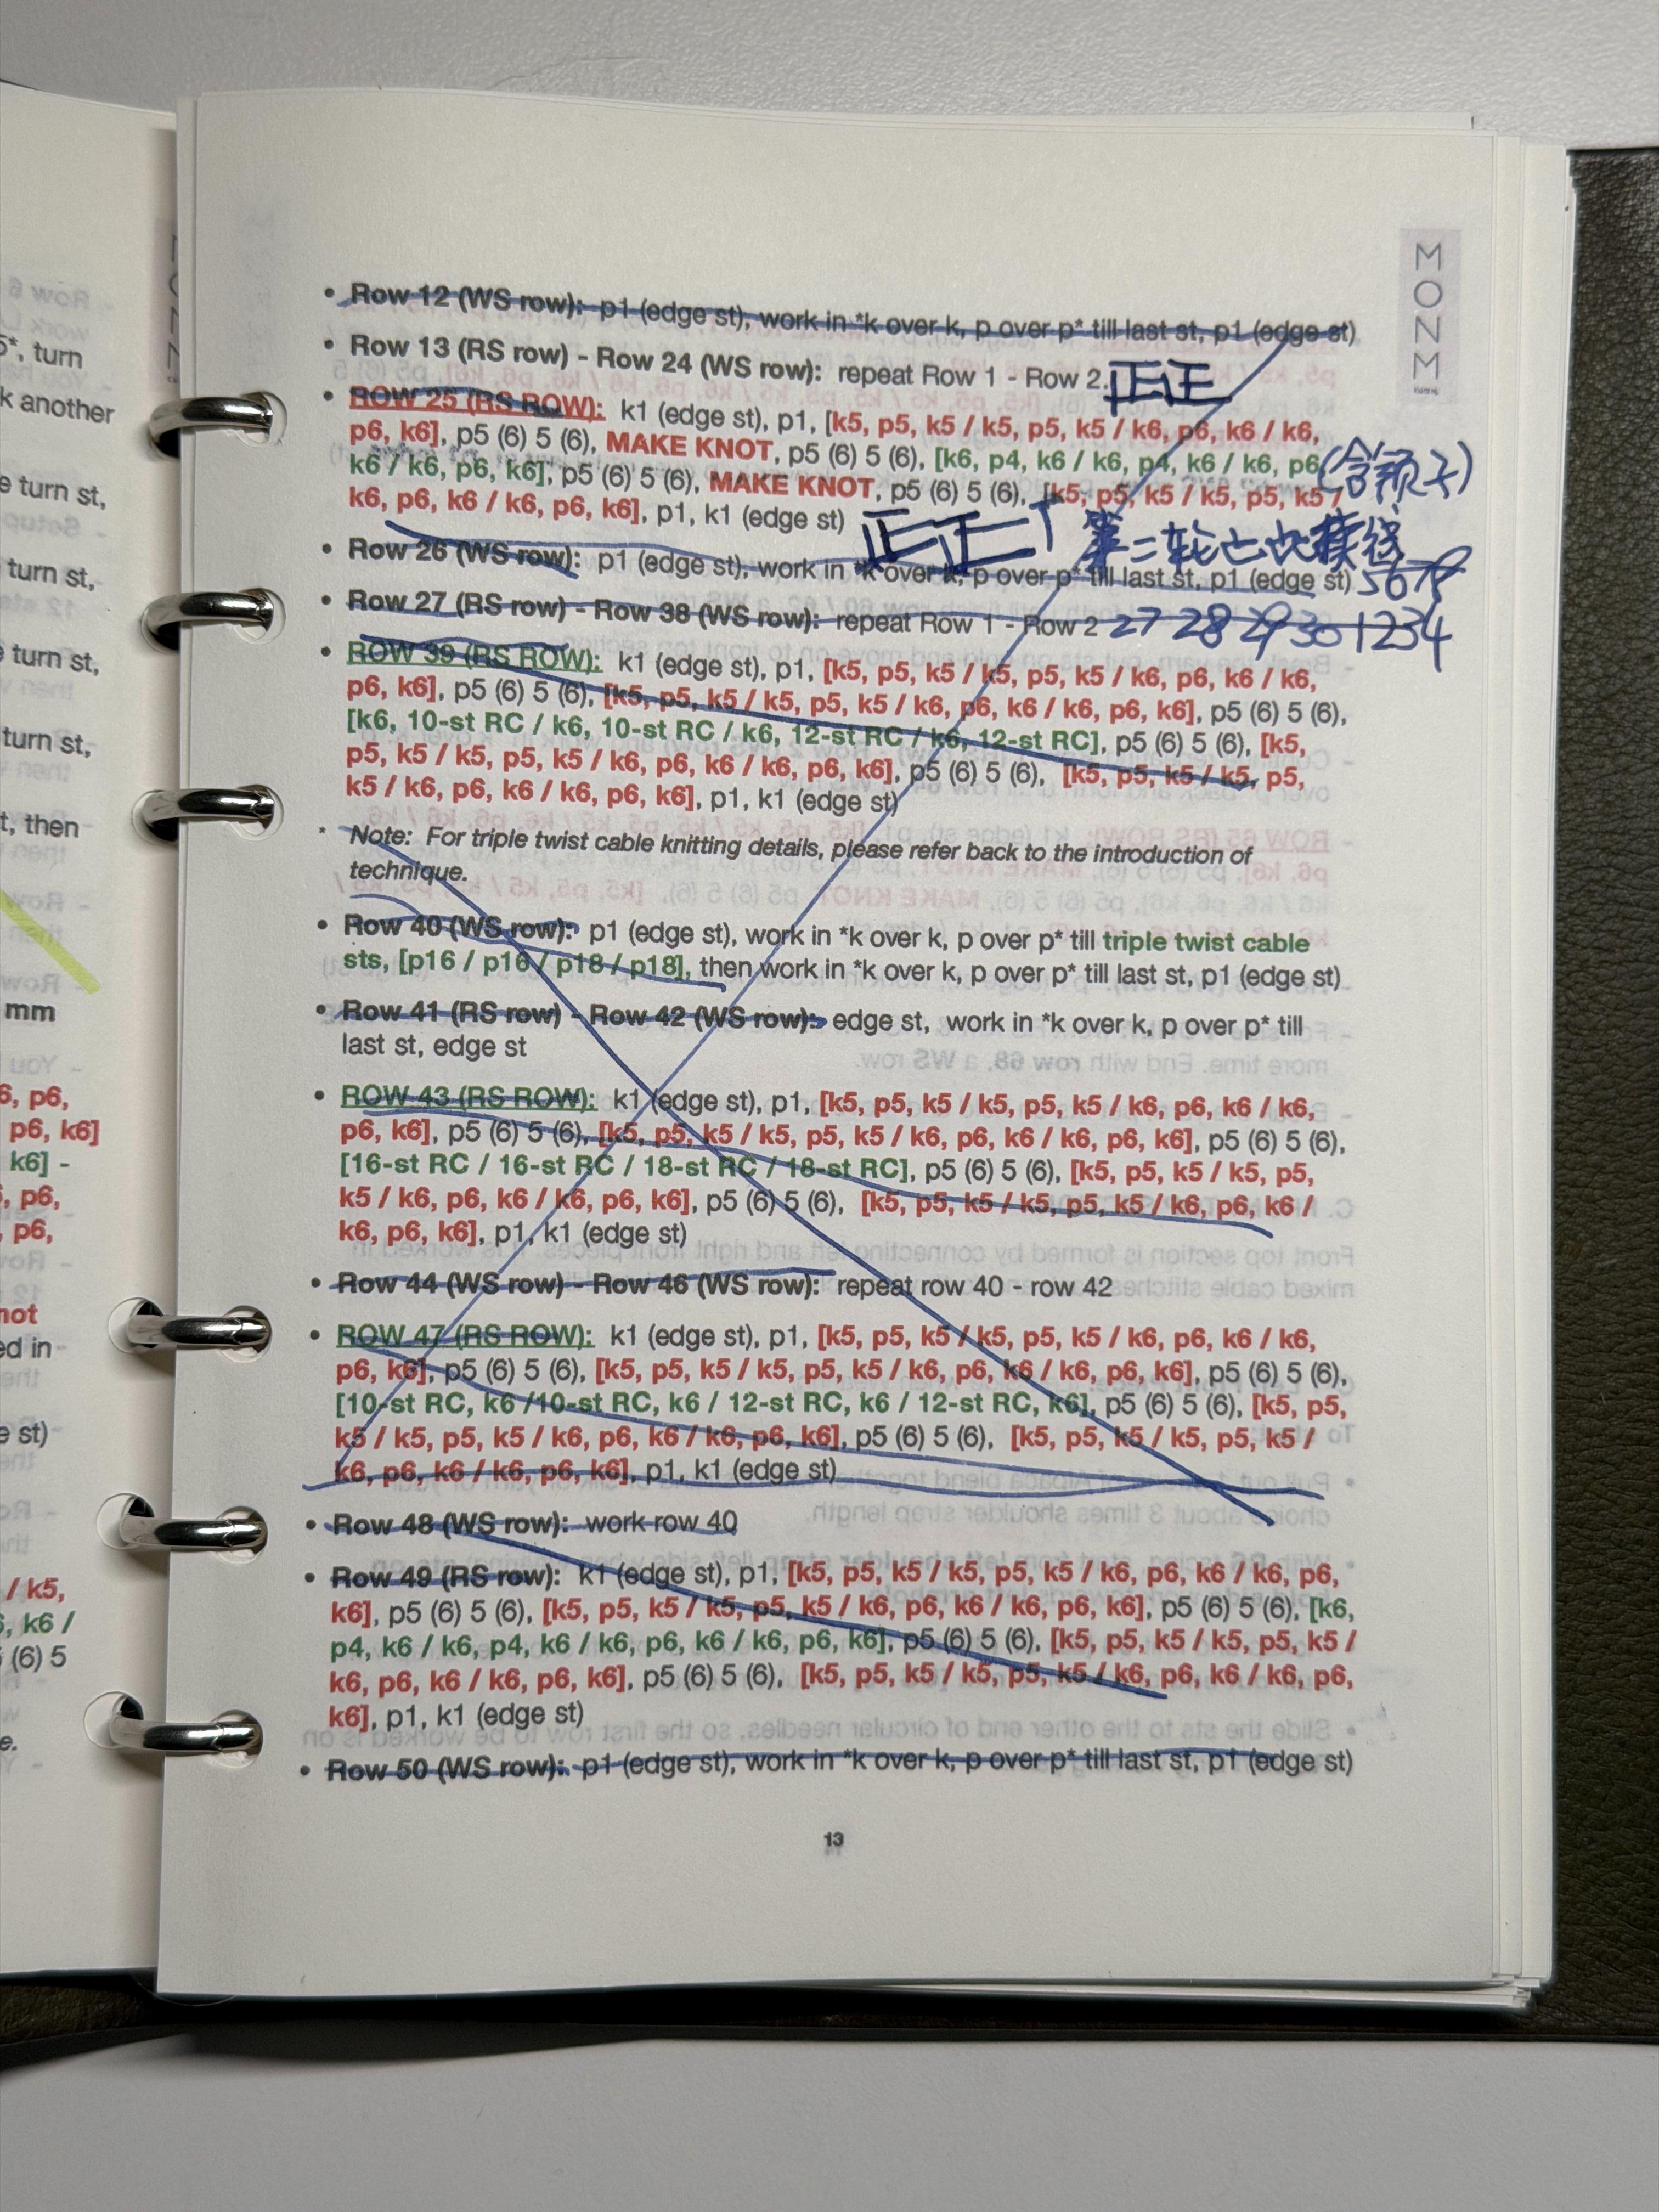 MONM
• Row 12 (WS row): p1 (edge st), work in *k over k, p over p* till last st, p1 (edge st)
• Row 13 (RS row) - Row 24 (WS row): repeat Row 1 - Row 2. 正正
• ROW 25 (RS ROW): k1 (edge st), p1, [k5, p5, k5 / k5, p5, k5 / k6, p6, k6 / k6,
p6, k6], p5 (6) 5 (6), MAKE KNOT, p5 (6) 5 (6), [k6, p4, k6 / k6, p4, k6 / k6, p6,
(含领子)
k6 / k6, p6, k6], p5 (6) 5 (6), MAKE KNOT, p5 (6) 5 (6), [k5, p5, k5 / k5, p5, k5 /
k6, p6, k6 / k6, p6, k6], p1, k1 (edge st) 正正一丅 第二轮七次
• Row 26 (WS row): p1 (edge st), work in *k over k, p over p* till last st, p1 (edge st) 5678
• Row 27 (RS row) - Row 38 (WS row): repeat Row 1 - Row 2 27 28 29 30 1234
• ROW 39 (RS ROW): k1 (edge st), p1, [k5, p5, k5 / k5, p5, k5 / k6, p6, k6 / k6,
p6, k6], p5 (6) 5 (6), [k5, p5, k5 / k5, p5, k5 / k6, p6, k6 / k6, p6, k6], p5 (6) 5 (6),
[k6, 10-st RC / k6, 10-st RC / k6, 12-st RC / k6, 12-st RC], p5 (6) 5 (6), [k5,
p5, k5 / k5, p5, k5 / k6, p6, k6 / k6, p6, k6], p5 (6) 5 (6), [k5, p5, k5 / k5, p5,
k5 / k6, p6, k6 / k6, p6, k6], p1, k1 (edge st)
* Note: For triple twist cable knitting details, please refer back to the introduction of
technique.
• Row 40 (WS row): p1 (edge st), work in *k over k, p over p* till triple twist cable
sts, [p16 / p16 / p18 / p18], then work in *k over k, p over p* till last st, p1 (edge st)
• Row 41 (RS row) - Row 42 (WS row): edge st, work in *k over k, p over p* till
last st, edge st
• ROW 43 (RS ROW): k1 (edge st), p1, [k5, p5, k5 / k5, p5, k5 / k6, p6, k6 / k6,
p6, k6], p5 (6) 5 (6), [k5, p5, k5 / k5, p5, k5 / k6, p6, k6 / k6, p6, k6], p5 (6) 5 (6),
[16-st RC / 16-st RC / 18-st RC / 18-st RC], p5 (6) 5 (6), [k5, p5, k5 / k5, p5,
k5 / k6, p6, k6 / k6, p6, k6], p5 (6) 5 (6), [k5, p5, k5 / k5, p5, k5 / k6, p6, k6 /
k6, p6, k6], p1, k1 (edge st)
• Row 44 (WS row) - Row 46 (WS row): repeat row 40 - row 42
• ROW 47 (RS ROW): k1 (edge st), p1, [k5, p5, k5 / k5, p5, k5 / k6, p6, k6 / k6,
p6, k6], p5 (6) 5 (6), [k5, p5, k5 / k5, p5, k5 / k6, p6, k6 / k6, p6, k6], p5 (6) 5 (6),
[10-st RC, k6 /10-st RC, k6 / 12-st RC, k6 / 12-st RC, k6], p5 (6) 5 (6), [k5, p5,
k5 / k5, p5, k5 / k6, p6, k6 / k6, p6, k6], p5 (6) 5 (6), [k5, p5, k5 / k5, p5, k5 /
k6, p6, k6 / k6, p6, k6], p1, k1 (edge st)
• Row 48 (WS row): work row 40
• Row 49 (RS row): k1 (edge st), p1, [k5, p5, k5 / k5, p5, k5 / k6, p6, k6 / k6, p6,
k6], p5 (6) 5 (6), [k5, p5, k5 / k5, p5, k5 / k6, p6, k6 / k6, p6, k6], p5 (6) 5 (6), [k6,
p4, k6 / k6, p4, k6 / k6, p6, k6 / k6, p6, k6], p5 (6) 5 (6), [k5, p5, k5 / k5, p5, k5 /
k6, p6, k6 / k6, p6, k6], p5 (6) 5 (6), [k5, p5, k5 / k5, p5, k5 / k6, p6, k6 / k6, p6,
k6], p1, k1 (edge st)
• Row 50 (WS row): p1 (edge st), work in *k over k, p over p* till last st, p1 (edge st)
13